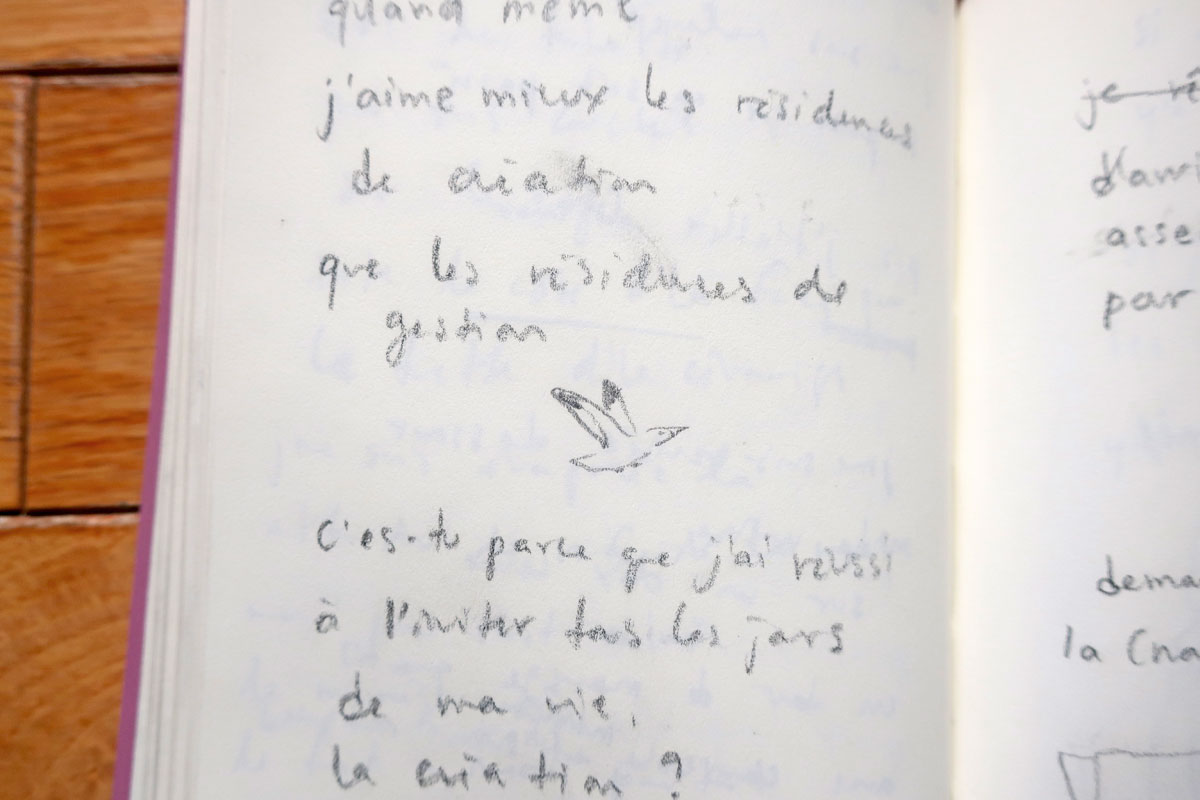 quand même
j'aime mieux les résidences
de création
que les résidences de
gestion
C'es-tu parce que j'ai réussi
à l'inviter tous les jours
de ma vie,
la création ?
je
asse
par
dema
la Cna